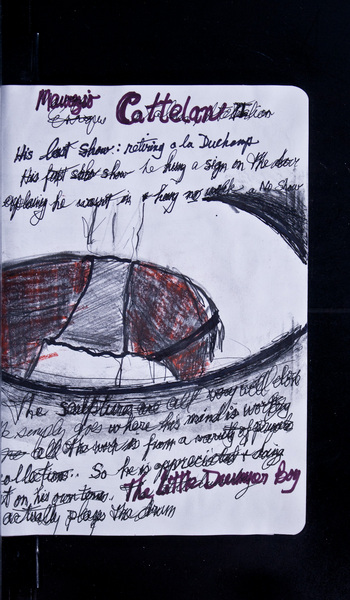 Maurizio Cattelan
His last show: retiring a la Duchamp
His first solo show he hung a sign on the door
explaining he wasn't in & hung no work. No Show
The sculptures are all very well done
simple gives where his mind is working
all the work is from a variety of private
collections. So he is appreciated & doing
it on his own terms. The Little Drummer Boy
actually plays the drum